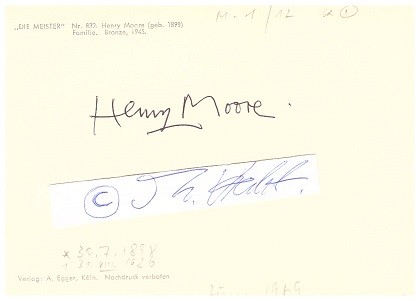 „DIE MEISTER" Nr. 832. Henry Moore (geb. 1898)
Familie. Bronze, 1945.
M-1/12 x ①
Henry Moore.
© Th.
* 30.7.1898
Verlag: A. Egger, Köln. Nachdruck verboten